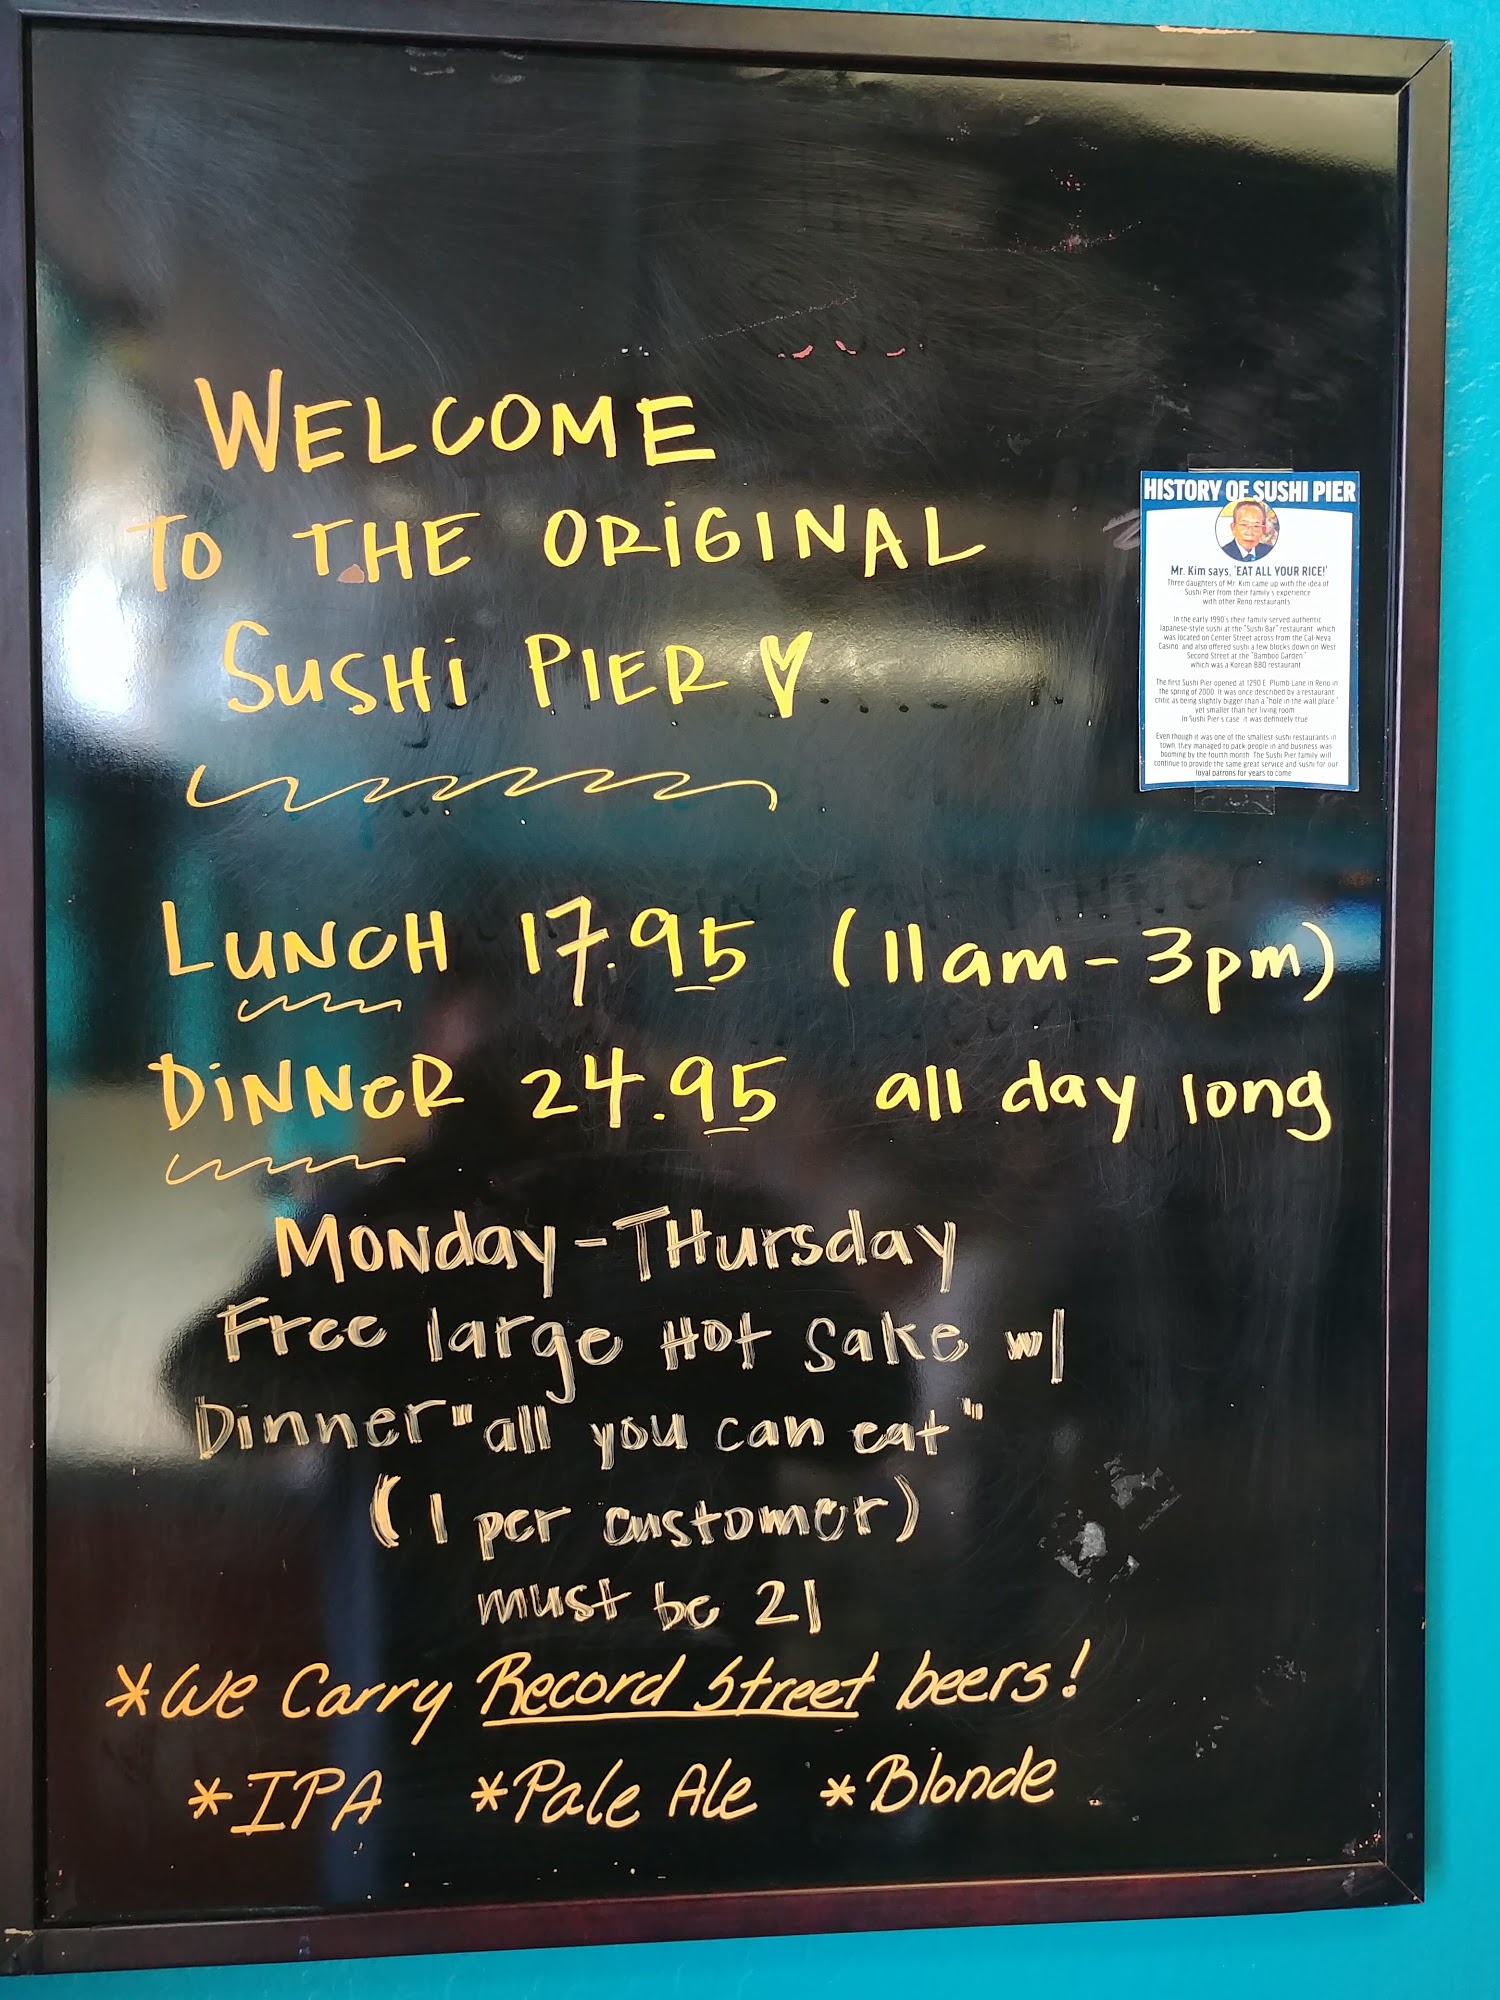 WELCOME
TO THE ORIGINAL
SUSHI PIER
LUNCH 17.95 (11am - 3pm)
DINNER 24.95 all day long
Monday - Thursday
Free large Hot Sake w/
Dinner "all you can eat"
(1 per customer)
must be 21
*We Carry Record Street beers!
*IPA *Pale Ale *Blonde
HISTORY OF SUSHI PIER
Mr. Kim says, 'EAT ALL YOUR RICE!'
Three daughters of Mr. Kim came up with the idea of
Sushi Pier from their family's experience
with other Reno restaurants
In the early 1990's their family served authentic
Japanese-style sushi at the "Sushi Bar" restaurant which
was located on Center Street across from the Cal-Neva
Casino and also offered sushi a few blocks down on West
Second Street at the "Bamboo Garden"
which was a Korean BBQ restaurant
The first Sushi Pier opened at 1290 E. Plumb Lane in Reno in
the spring of 2000. It was once described by a restaurant
critic as being slightly bigger than a "hole in the wall place"
yet smaller than her living room
In Sushi Pier's case it was definitely true
Even though it was one of the smallest sushi restaurants in
town, they managed to pack people in and business was
booming by the fourth month. The Sushi Pier family will
continue to provide the same great service and sushi for our
loyal patrons for years to come